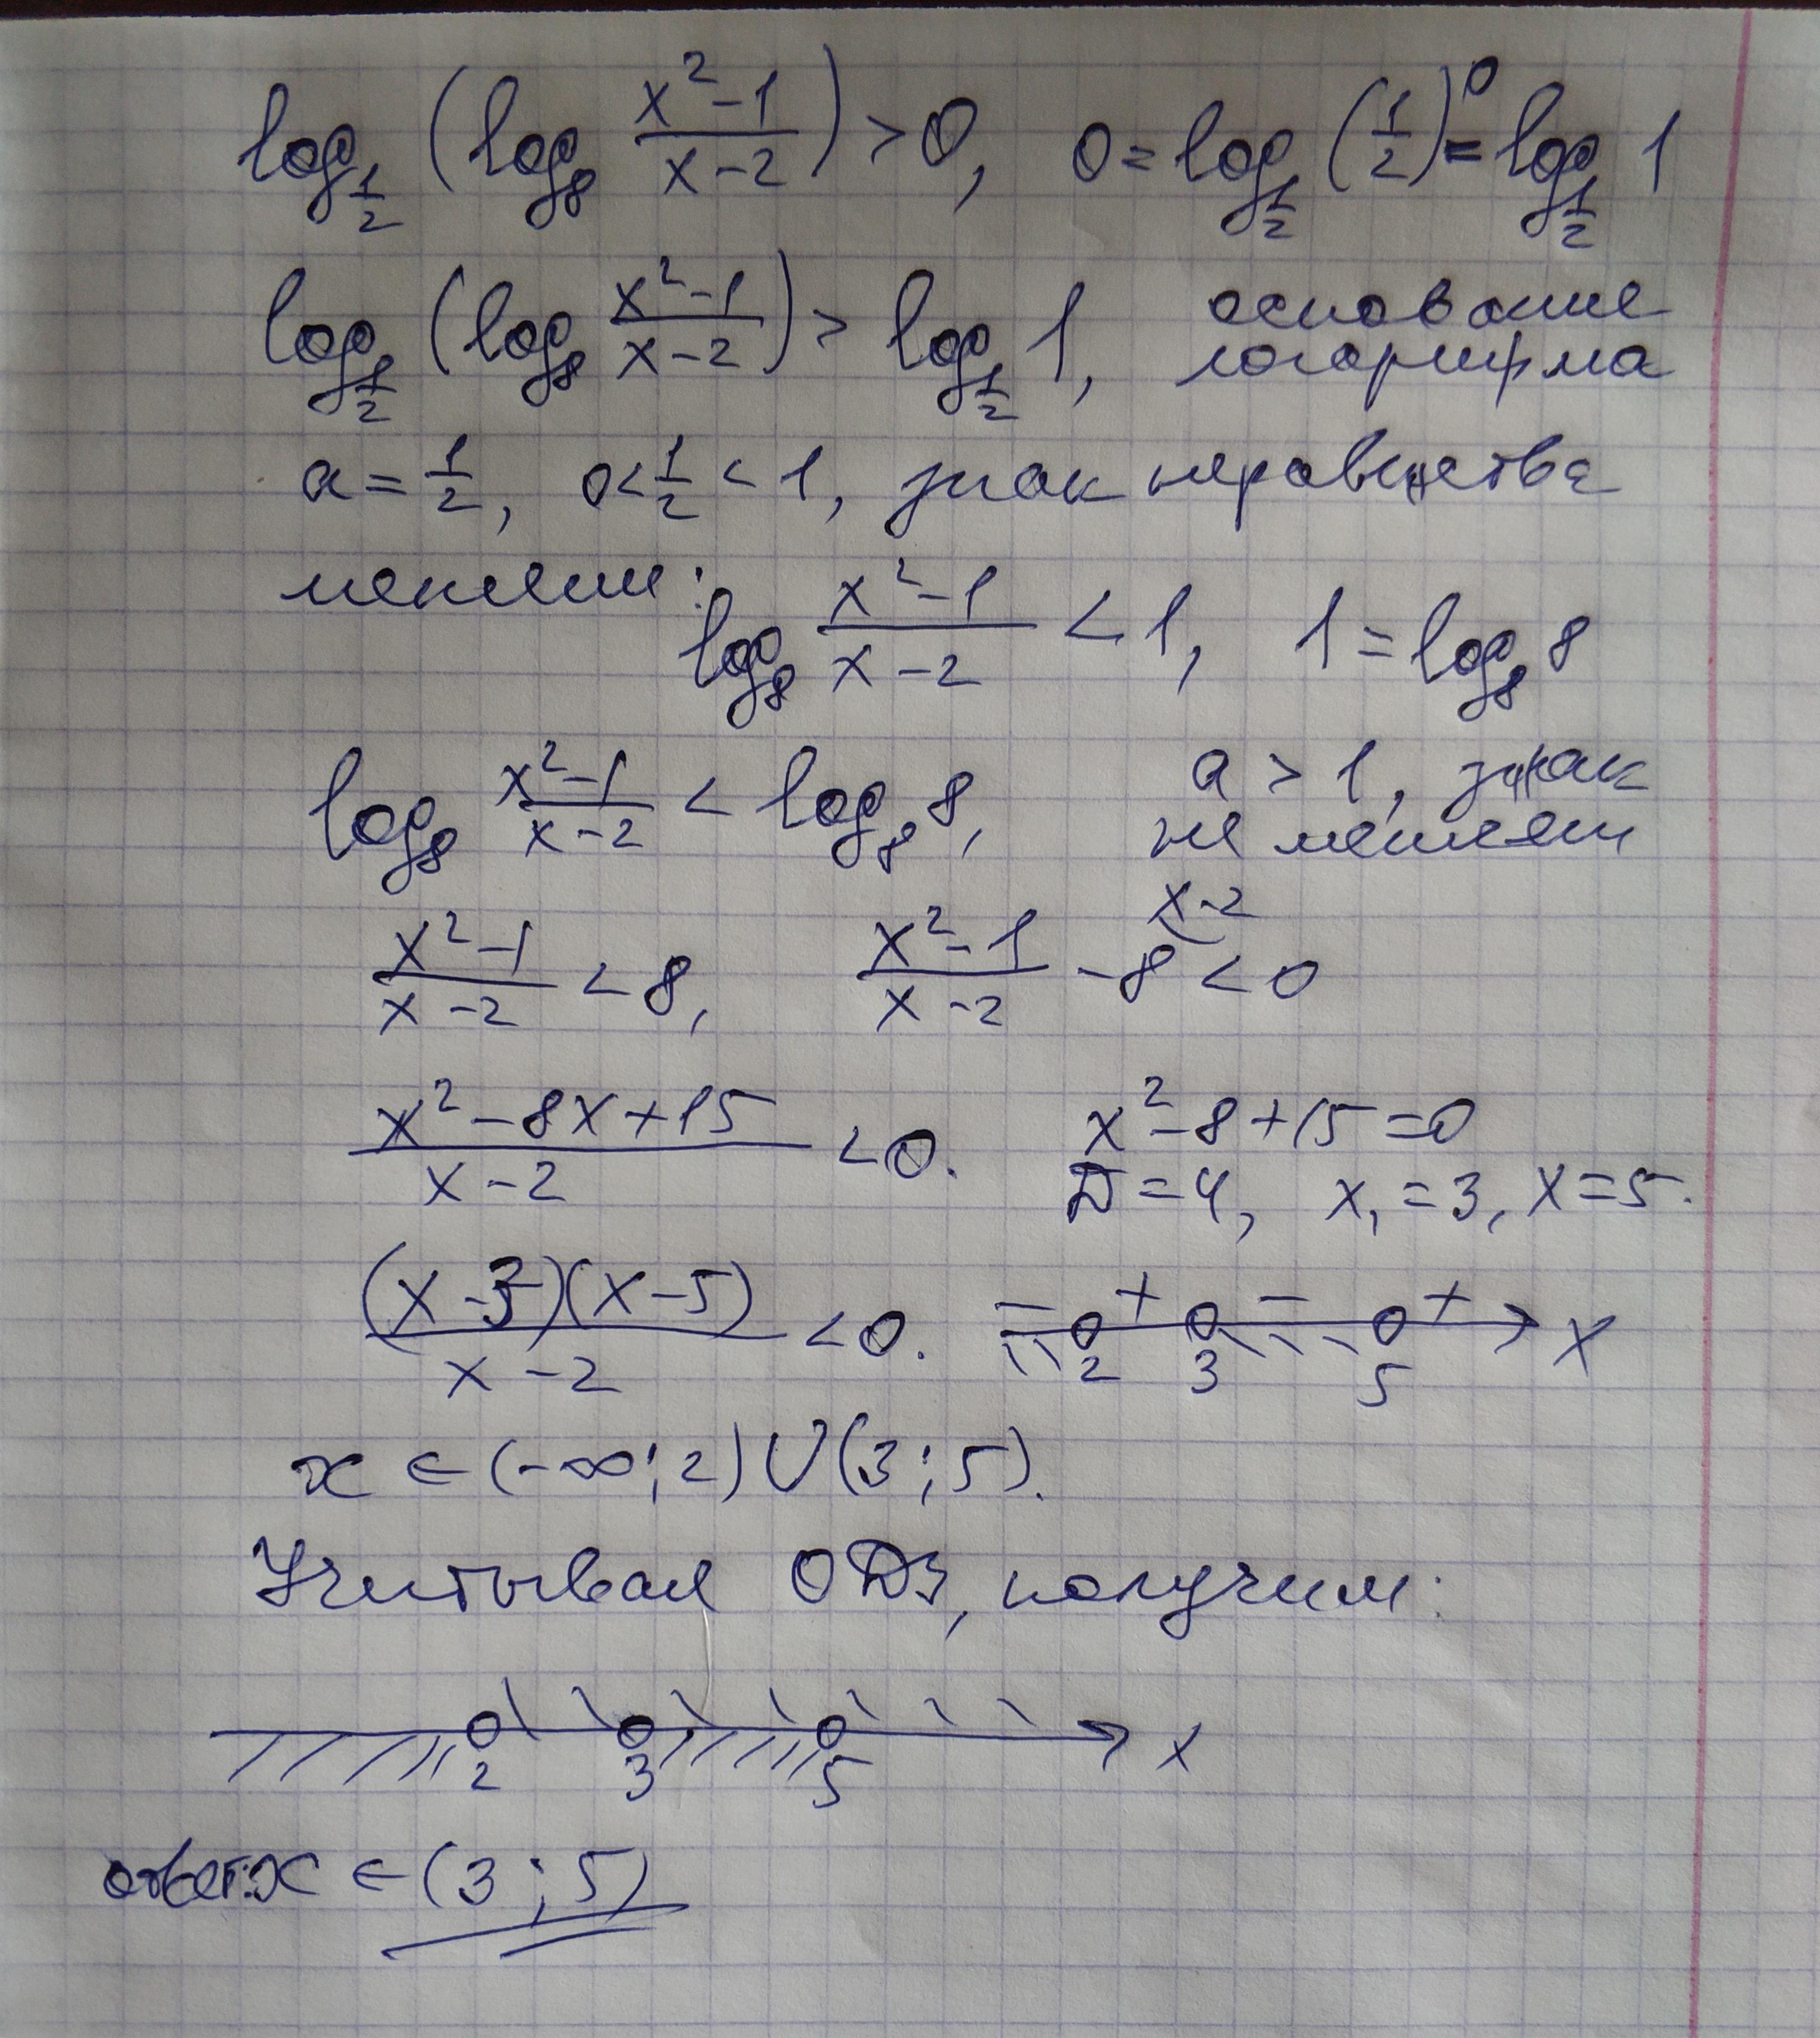 log_{1/2} (log_8 (x²-1)/(x-2)) > 0, 0 = log_{1/2} (1/2)^0 = log_{1/2} 1
log_{1/2} (log_8 (x²-1)/(x-2)) > log_{1/2} 1, основание
логарифма
a = 1/2, 0 < 1/2 < 1, знак неравенства
меняем:
log_8 (x²-1)/(x-2) < 1, 1 = log_8 8
log_8 (x²-1)/(x-2) < log_8 8, a > 1, знак
не меняем
(x²-1)/(x-2) < 8, (x²-1)/(x-2) - 8 < 0
x-2
(x²-8x+15)/(x-2) < 0. x²-8+15=0
D=4, x₁=3, x=5.
((x-3)(x-5))/(x-2) < 0. - + - + x
2 3 5
x ∈ (-∞; 2) ∪ (3; 5).
Учитывая ОДЗ, получим:
2 3 5 x
ответ: x ∈ (3; 5)